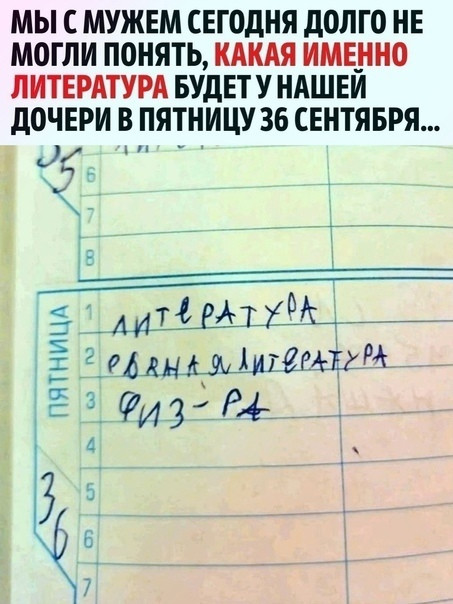 МЫ С МУЖЕМ СЕГОДНЯ ДОЛГО НЕ
МОГЛИ ПОНЯТЬ, КАКАЯ ИМЕННО
ЛИТЕРАТУРА БУДЕТ У НАШЕЙ
ДОЧЕРИ В ПЯТНИЦУ 36 СЕНТЯБРЯ...
5 6
7
8
ПЯТНИЦА
1 ЛИТЕРАТУРА
2 РВАНАЯ ЛИТЕРАТУРА
3 ФИЗ-РА
4
36 5
6
7